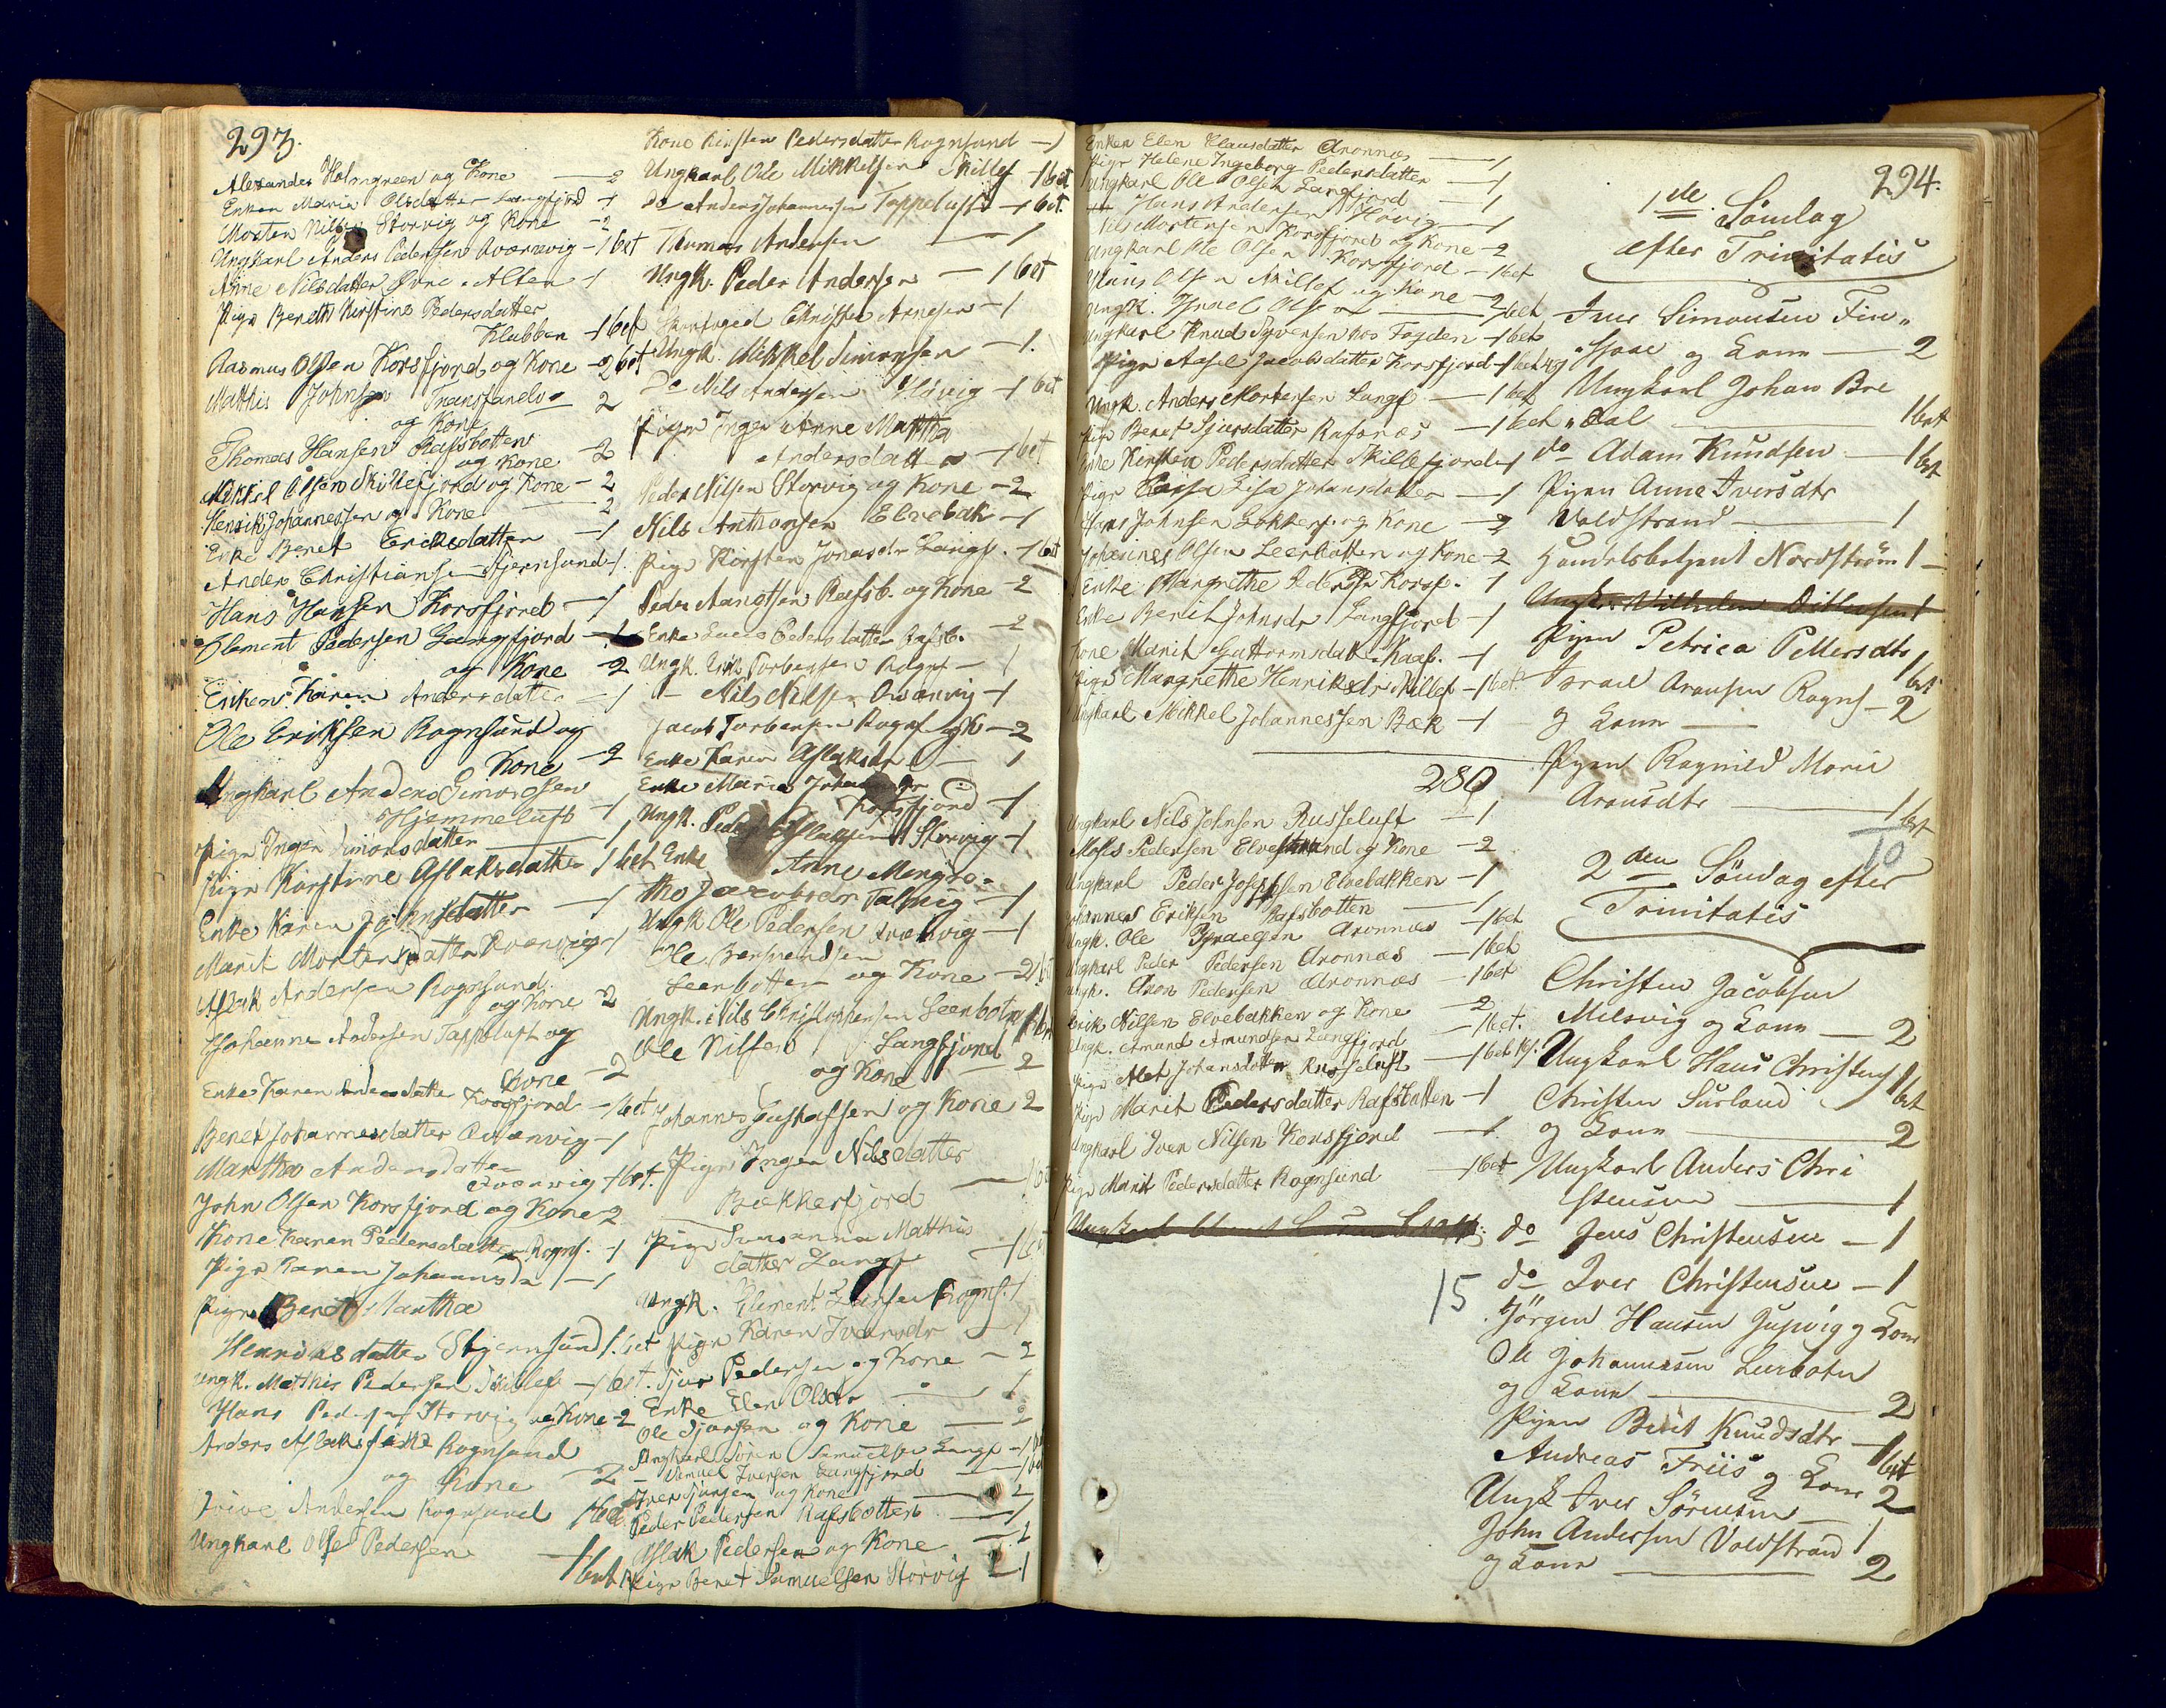 293.
Alexander Holmgreen og Kone - 2
Enken Maria Olsdatter Langfjord - 1
Morten Nilsen Storvig og Kone - 2
Ungkarl Anders Pedersen Qvænvig - 1 bet
Anne Nilsdatter Øvre Alten - 1
Pige Bereth Kirstine Pedersdatter
Klubben - 1 bet
Rasmus Olsen Korsfjord og Kone - 2 bet
Matthis Johnsen Transfandv
og Kone 2
Thomas Hansen Rafsbotten
og Kone - 2
Mikkel Olsen Skillefjord og Kone - 2
Henrik Johannessen og Kone - 2
Enke Beret Ericksdatter - 1
Anders Christiansen Stjernsund - 1
Hans Hansen Korsfjord - 1
Clement Pedersen Langfjord
og Kone - 2
Enken Karen Andersdatter - 1
Ole Eriksen Rognsund og
Kone - 2
Ungkarl Anders Simonsen
Hjemmeluft - 1
Pige Inger Simonsdatter - 1
Pige Kirstine Aslaksdatter 1 bet
Enke Karen Johnsdatter - 1
Marit Mortensdatter Qvænvig - 1
Aslak Andersen Rognsund
og Kone 2
Johannes Andersen Tappeluft og
Kone - 2
Enke Karen Andersdatter Korsfjord - 1 bet
Beret Johannesdatter Qvænvig - 1
Martha Andersdatter
Qvænvig - 1 bet.
John Olsen Korsfjord og Kone 2
Kone Karen Pedersdatter Rognf. - 1
Pige Karen Johannsdr - 1
Pige Beret Martha
Henriksdatter Stjernsund 1 bet
Ungk. Mathis Pedersen Skillef - 1 bet.
Hans Pedersen Storvig og Kone - 2
Anders Aslaksen Rognsund
og Kone 2
Andersen Rognsund 1 bet
Ungkarl Ole Pedersen - 1 bet
Kone Kirsten Pedersdatter Rognsund - 1
Ungkarl Ole Mikkelsen Skillef - 1 bet
Do Anders Johannesen Tappeluft - 1 bet.
Thomas Andersen - 1
Ungk. Peder Andersen - 1 bet
Skarfoged Christen Arnesen - 1
Ungk. Mikkel Simonsen - 1.
Do Nils Andersen Storvig - 1 bet
Pigen Inger Anne Martha
Andersdatter - 1 bet
Peder Nilsen Storvig og Kone - 2
Nils Anthonsen Elvebak - 1
Pige Kirsten Jonasdr Langf. - 1 bet
Peder Aanotsen Rafsb. og Kone - 2
Enke Lucie Pedersdatter Rafsb. - 2
Ungk. Erik Torbersen Rognf - 1
- Nils Nilsen Qvænvig - 1
Jacob Torbersen Rognf og K - 2
Enke Karen Aslaksdr - 1
Enke Maria
Korsfjord - 1
Ungk. Peder Storvig - 1
Enke Anne Margre-
the Jacobsdr Talvig - 1
Ungk. Ole Pedersen Qvænvig - 1
Ole Berhendsen
Leerbotten og Kone - 2
Ungk. Nils Christophersen Leerbotn 1 bet
Ole Nilsen Langfjord
og Kone - 2
Johannes Gustafsen og Kone 2
Pige Inger Nilsdatter
Bækkerfjord
Pige Susanna Matthis
datter Langf - 1 bet
Ungk. Clement Larsen Rognf. 1
Pige Karen Iversdr - 1
Sjur Pedersen og Kone - 2
Enke Elen Olsdr - 1
Ole Sjursen og Kone - 2
Ungkarl Søren Samuelsen Langf - 1
- Samuel Iversen Langfjord
Iver Sjursen og Kone - 2
Peder Pedersen Rafsbotten - 1
Aslak Pedersen og Kone - 2
Pige Beret Samuelsen Storvig - 1
Enken Elen Klausdatter Aronnæs - 1
Pige Helene Ingeborg Pedersdatter - 1
Ungkarl Ole Olsen Langfjord - 1
Hans Andersen Storvig - 1
Nils Mortensen Korsfjord og Kone - 2
Ungkarl Ole Olsen Korsfjord - 1 bet
Hans Olsen Skillef og Kone - 2
Ungk. Israel Olsen - 1 bet
Ungkarl Knud Syversen hos Fogden - 1 bet
Pige Aasel Jacobsdatter Korsfjord - 1 bet
Ungk. Anders Mortensen Langf - 1 bet
Pige Beret Sjursdatter Rafsnæs - 1 bet
Enke Kirsten Pedersdatter Skillefjord - 1
Pige Lisa Johansdatter - 1
Hans Johnsen Lokkerf og Kone - 2
Johannes Olsen Leerbotten og Kone - 2
Enke Margrethe Pedersdr Korsf. - 1
Enke Berith Johnsdr Langfjord - 1
Kone Marit Guttormsdatr. Kaaf. - 1
Pige Margrethe Henriksdr Skillef - 1 bet.
Ungkarl Mikkel Johannessen Bæk - 1
280
Ungkarl Nils Johnsen Russeluft - 1
Moses Pedersen Elvestrand og Kone - 2
Ungkarl Peder Josephsen Elvebakken - 1
Johannes Eriksen Rafsbotten - 1
Ungk. Ole Israelsen Aronnæs - 1 bet
Ungkarl Peder Pedersen Aronnæs - 1 bet
Ungk. Aron Pedersen Aronnæs - 1 bet
Erik Nilsen Elvebakken og Kone - 2
Ungk. Amund Amundsen Langfjord - 1 bet.
Pige Alet Johansdatter Russeluft - 1 bet
Pige Marit Pedersdatter Rafsbotten - 1
Ungkarl Iver Nilsen Korsfjord - 1
Pige Marit Pedersdatter Rognsund - 1 bet
15
294.
1de Søndag
efter Trinitatis
Iver Simonsen Fin„
og Kone - 2
Ungkarl Johan Bre
„dal 1 bet
do Adam Knudsen - 1 bet
Pigen Anne Iversdtr
Voldstrand - 1
Handelsbetjent Nordstrøm 1
Ungk. Vilhelm Ditlevsen 1
Pigen Petrica Pettersdtr 1 bet
Israel Aronsen Rognf - 2
og Kone
Pigen Ragnild Marie
Aronsdtr 1 bet
10
2den Søndag efter
Trinitatis
Christen Jacobsen
Milsvig og Kone - 2
Ungkarl Hans Christens 1 bet
Christen Surland
og Kone 2
Ungkarl Anders Chri
stensen 1
do Jens Christensen - 1
do Iver Christensen - 1
Jørgen Hansen og Kone
Ole Johannesen Leerbotn
og Kone 2
Pigen Berit Knudsdtr - 1 bet
Andreas Friis og Kone 2
Ungk Iver Sørensen 1
John Andersen Voldstrand
og Kone 2